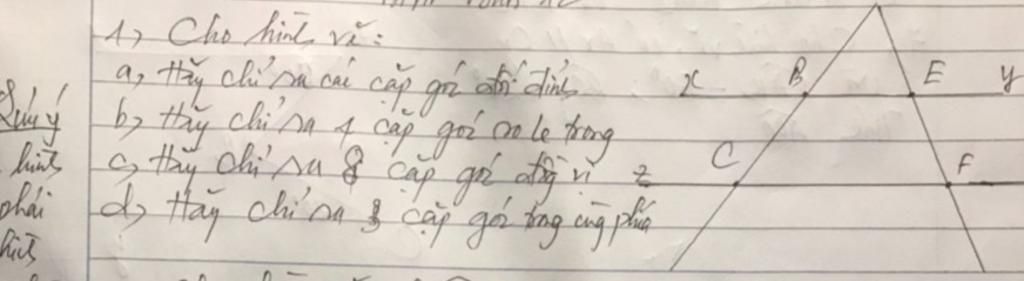 1, Cho hình vẽ:
a, Hãy chỉ ra các cặp góc đối đỉnh
x B E y
b, Hãy chỉ ra 4 cặp góc so le trong
Lưu ý
hình
c, Hãy chỉ ra 8 cặp góc đồng vị
z C F
phải
d, Hãy chỉ ra 3 cặp góc trong cùng phía